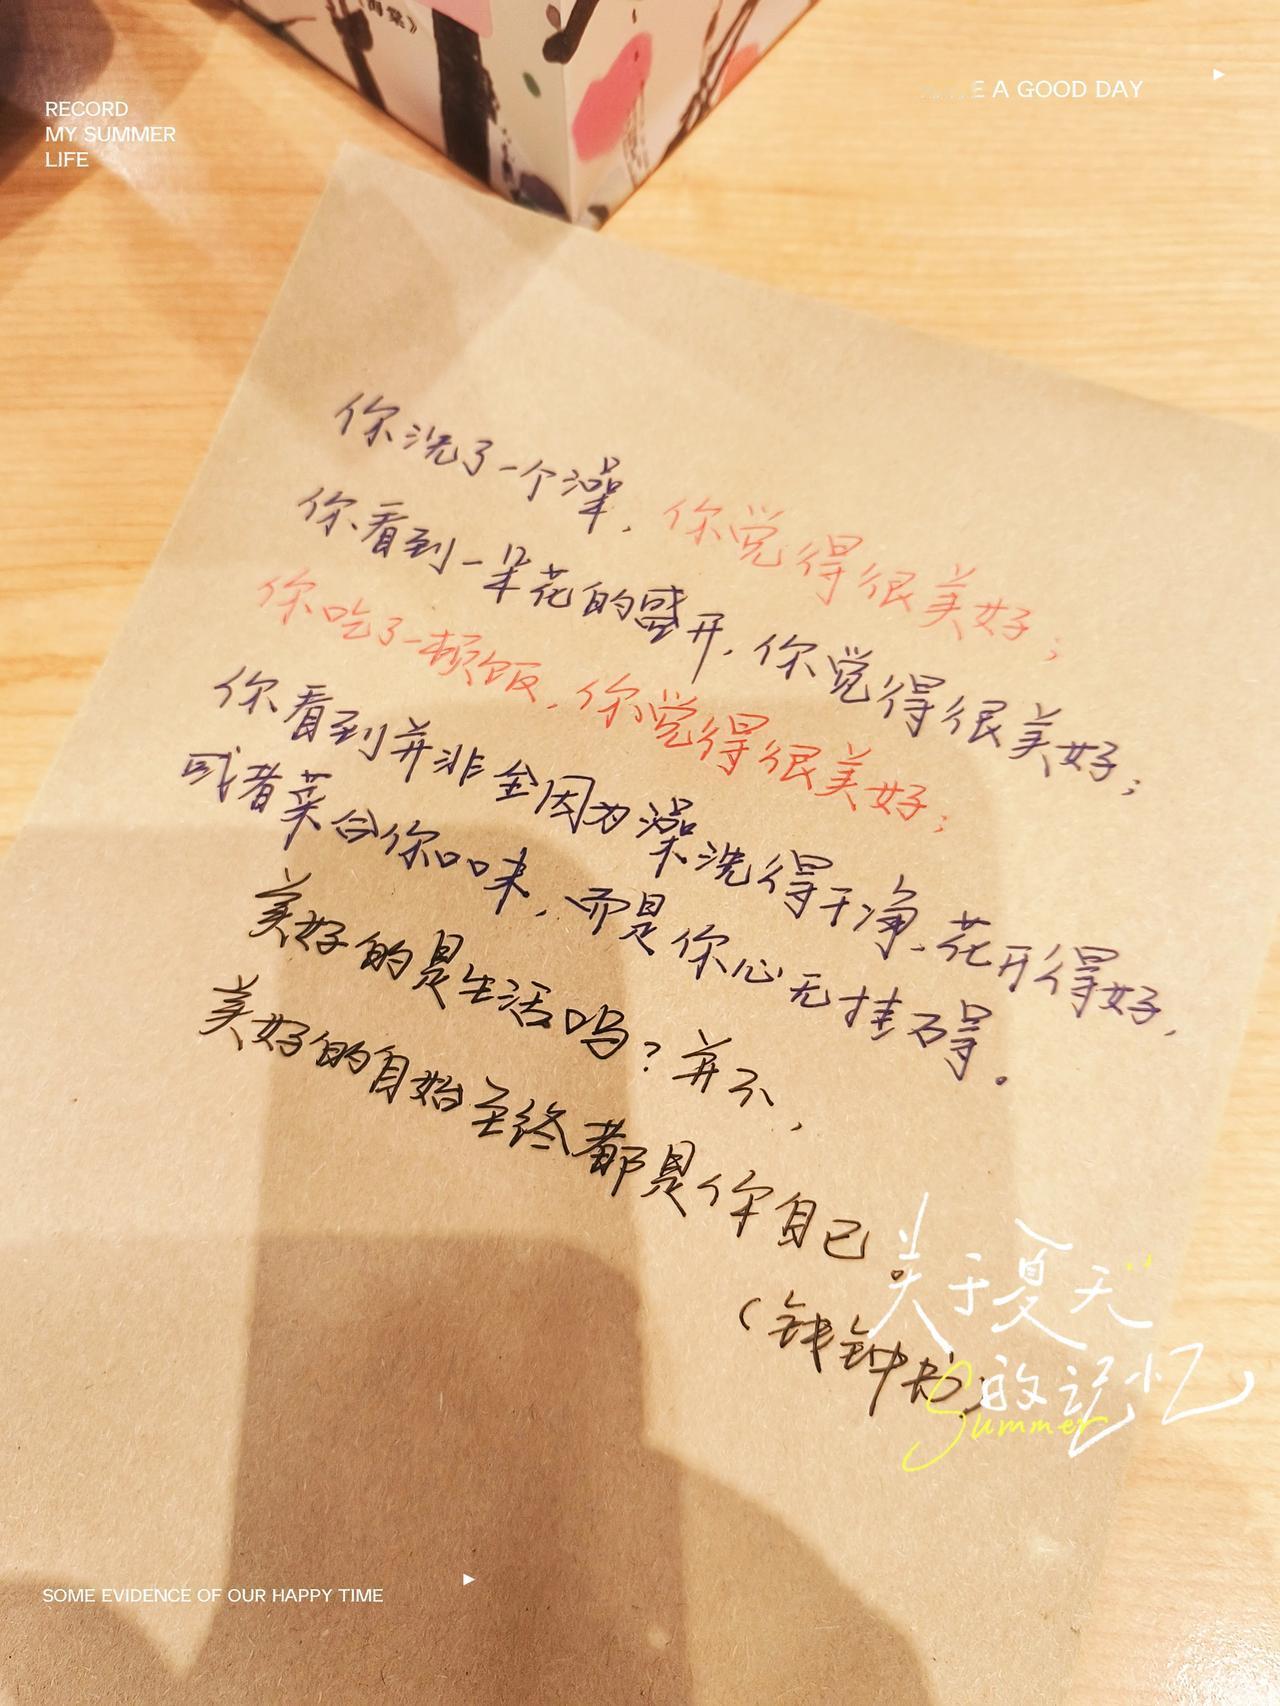 海棠》
RECORD
MY SUMMER
LIFE
E A GOOD DAY
你洗了一个澡，你觉得很美好；
你看到一朵花的盛开，你觉得很美好；
你吃了一顿饭，你觉得很美好；
你看到并非全因为澡洗得干净、花开得好，
或者菜合你口味，而是你心无挂碍。
美好的是生活吗？并不，
美好的自始至终都是你自己
（钱钟书）
关于夏天
的记忆
Summer
SOME EVIDENCE OF OUR HAPPY TIME